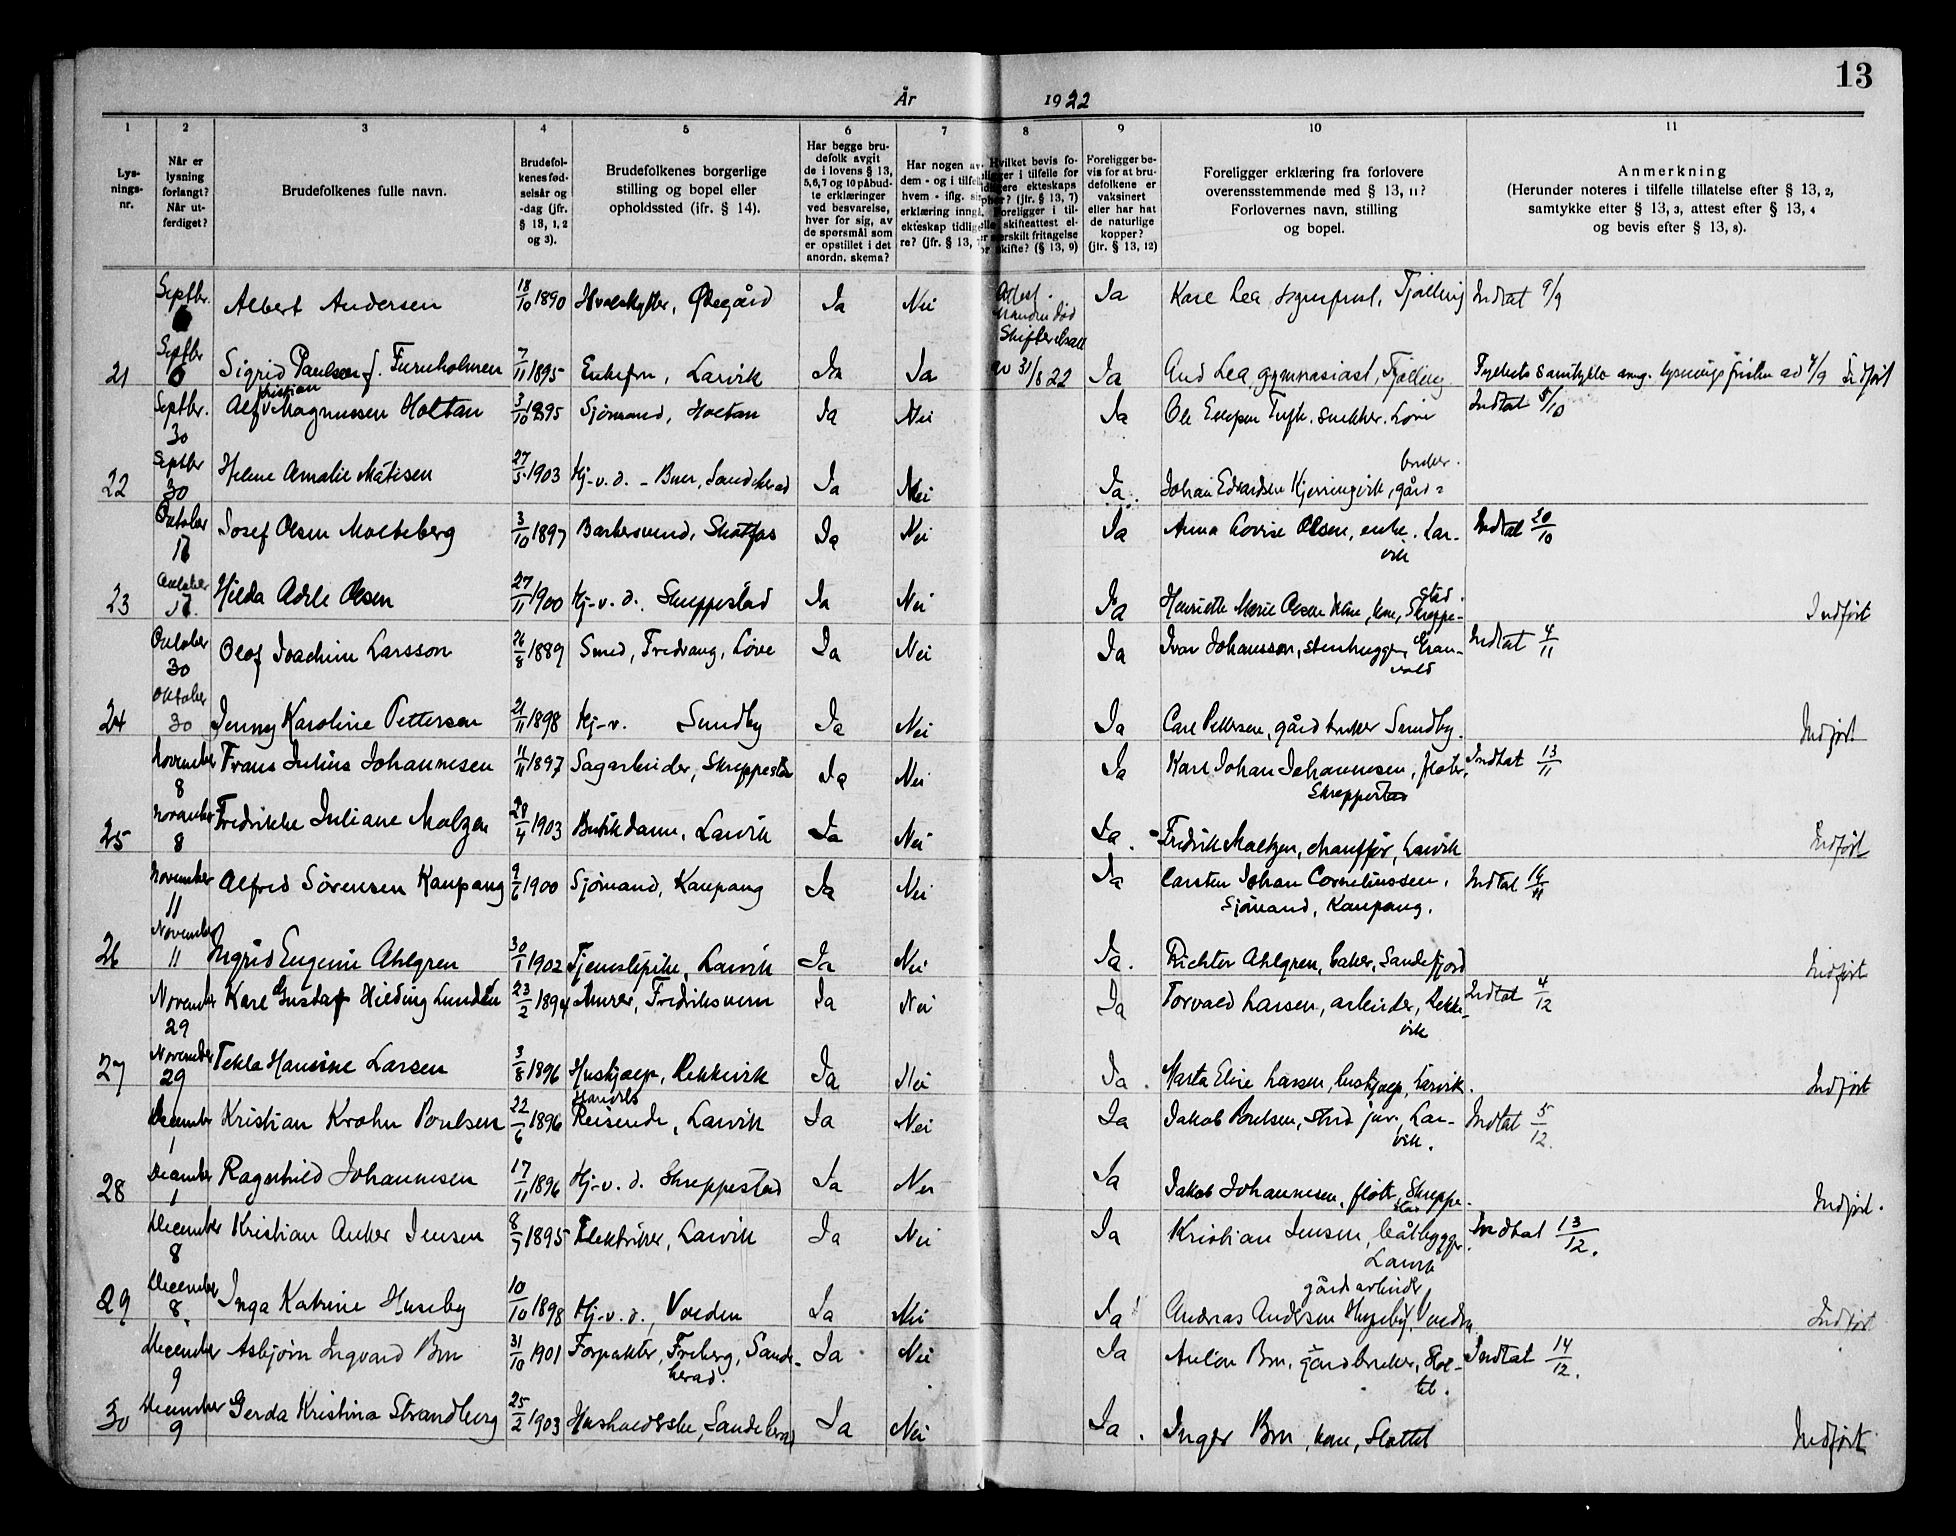 13
År 1922
1 2 3 4 5 6 7 8 9 10 11
Lys-
nings-
nr.
Når er
lysning
forlangt?
Når ut-
ferdiget?
Brudefolkenes fulle navn.
Brudefol-
kenes fød-
selsår og
-dag (jfr.
§ 13, 1, 2
og 3).
Brudefolkenes borgerlige
stilling og bopel eller
opholdssted (jfr. § 14).
Har begge bru-
defolk avgit
de i lovens § 13,
5, 6, 7 og 10 påbud-
te erklæringer
ved besvarelse,
hver for sig, av
de spørsmål som
er opstillet i det
anordn. skema?
Har nogen av
dem - og i tilfelle
hvem - iflg.
erklæring inngå
ekteskap tidlige-
re? (jfr. § 13,
Hvilket bevis fo-
religger i tilfelle for
tidligere ekteskaps
ophør? (jfr. § 13, 7)
Foreligger i til-
felle skifteattest el-
ler særskilt fritagelse
for skifte? (§ 13, 9)
Foreligger be-
vis for at bru-
defolkene er
vaksinert
eller har hat
de naturlige
kopper?
(jfr. § 13, 12)
Foreligger erklæring fra forlovere
overensstemmende med § 13, 11?
Forlovernes navn, stilling
og bopel.
Anmerkning
(Herunder noteres i tilfelle tillatelse efter § 13, 2,
samtykke efter § 13, 3, attest efter § 13, 4
og bevis efter § 13, 8).
Septbr. Albert Andersen 18/10 1890 Hvalskytter, Ja Nei Attest. Ja Kare Lea Tjølling Indtat 9/9
Manden død
21 Septbr 6 Sigrid Paulsen f. Furuholmen 7/11 1895 Enkefru, Larvik Ja Ja av 31/8 22 Ja Aud Lea, gymnasiast, Tjølling ang. lysningsfristen ad 7/9 Indført
Septbr. 30 Alf Kristian Magnussen Holtan 3/10 1895 Sjømand, Holtan Ja Nei Ja Ole snekker. Indtat 5/10
22 Septbr 30 Helene Amalie Matisen 27/5 1903 Hj-v.d. - Buer, Sandeherad Ja Nei Ja. Johan Edvardsen Kjerringvik, gård=
bruker.
Oktober 17 Josef Olsen Molteberg 3/10 1897 Barbersvend, Skotfos Ja Nei Ja Anna Lovise Olsen, enke. Lar-
vik Indtat 20/10
23 Oktober 17. Hilda Adele Olsen 27/11 1900 Hj-v.d. Skreppestad Ja Nei Ja Henriette Marie Olsen kone, Skreppe-
stad. Indført
Oktober 30 Olof Joachim Larsson 26/8 1889 Smed, Fredvang, Løve Ja Nei Ja Ivar Johansson, stenhugger, Gran-
vold Indtat 4/11
24 Oktober 30 Jenny Karoline Pettersen 21/11 1898 Hj-v. Sundby Ja Nei Ja Carl Pettersen, gårdbruker Sundby. Indført
November 8 Frans Julius Johannesen 11/11 1897 Sagarbeider, Skreppestad Ja Nei Ja Karl Johan Johannesen, fløter,
Skreppestad Indtat 13/11
25 November 8 Fredrikke Juliane Molzen 28/4 1903 Butikdame, Larvik Ja Nei Ja. Fredrik Moltzen, chauffør, Larvik Indført
November 11 Alfred Sörensen Kaupang 9/6 1900 Sjömand, Kaupang Ja Nei Ja Carsten Johan Corneliussen.
Sjömand, Kaupang. Indtat 16/11
26 November 11 Ingrid Eugenie Ahlgren 30/1 1902 Tjenestepike, Larvik Ja Nei Ja. Richter Ahlgren, baker, Sandefjord Indført
November 29 Karl Gustaf Hilding Lundén 23/2 1894 Murer, Fredriksvern Ja Nei Ja Torvald Larsen, arbeider, Rekke-
vik Indtat 4/12
27 November 29 Tekla Hansine Larsen 3/8 1896 Hushjælp, Rekkevik Ja Nei Ja. Marta Elise Larsen, hushjælp, Larvik. Indført
December 1 Kristian Krohn Poulsen 22/6 1896 Handels
Reisende, Larvik Ja Nei Ja Jakob Poulsen, stud jur. Lar-
vik. Indtat 5/12.
28 December 1 Ragnhild Johannesen 17/11 1896 Hj-v.d. Skreppestad Ja Nei Ja Jakob Johannesen, fløter, Skreppe-
stad Indført.
December 8 Kristian Anker Jensen 8/7 1895 Elektriker, Larvik Ja Nei Ja Kristian Jensen, båtbygger.
Larvik Indtat 13/12.
29 December 8. Inga Katrine Huseby 10/10 1898 Hj-v.d., Valden Ja Nei Ja gårdarbeider
Andreas Andersen Huseby, Indført
December 9 Asbjørn Ingvard Bru 31/10 1901 Forpakter, Freberg, Sande-
herad. Ja Nei Ja Anton Bru, gårdbruker, Slot-
tet. Indtat 14/12.
30 December 9 Gerda Kristina Strandberg 25/2 1903 Husholderske, Sandeherad Ja Nei Ja. Inger Bru, kone, Slottet Indført